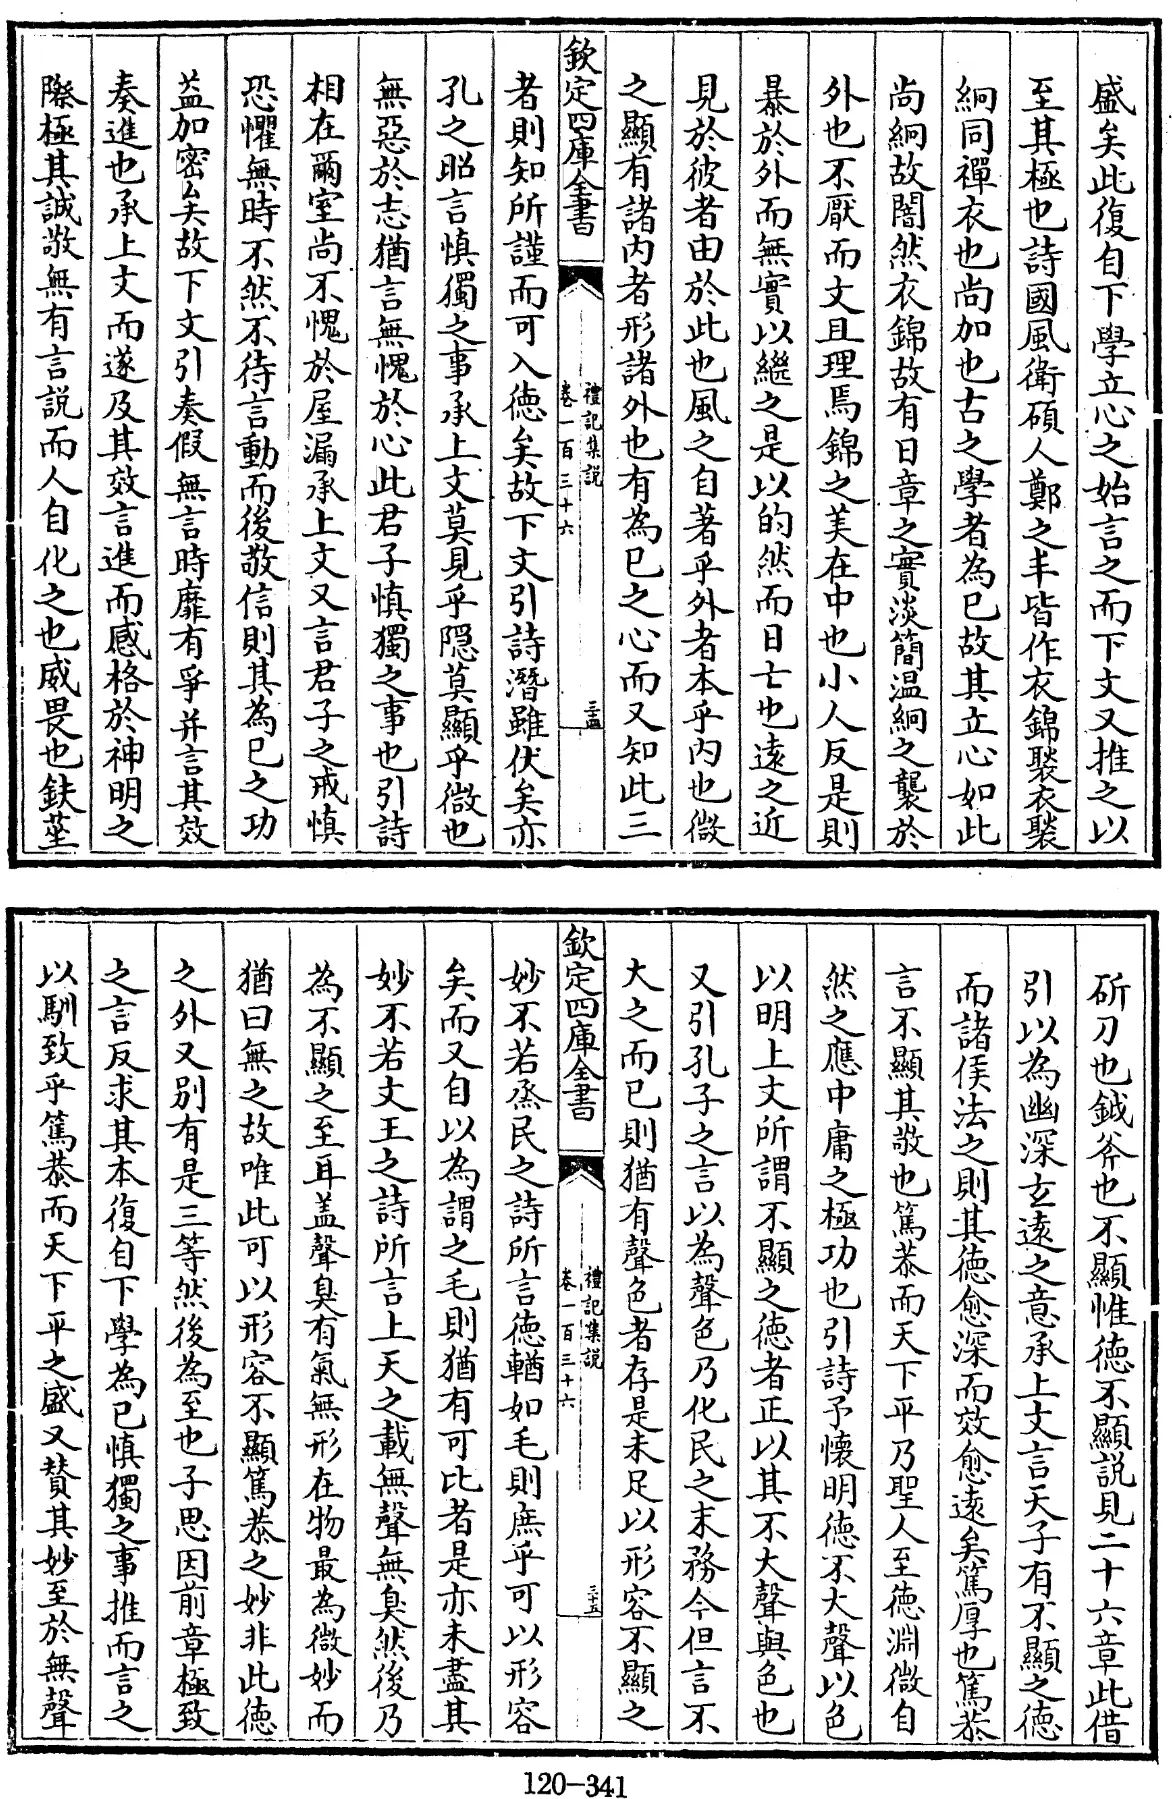 盛矣此復自下學立心之始言之而下文又推之以
至其極也詩國風衛碩人鄭之丰皆作衣錦褧衣褧
絅同襌衣也尚加也古之學者為已故其立心如此
尚絅故闇然衣錦故有日章之實淡簡温絅之襲於
外也不厭而文且理焉錦之美在中也小人反是則
暴於外而無實以繼之是以的然而日亡也遠之近
見於彼者由於此也風之自著乎外者本乎内也微
之顯有諸内者形諸外也有為已之心而又知此三
欽定四庫全書
禮記集説
卷一百三十六
三四
者則知所謹而可入徳矣故下文引詩潛雖伏矣亦
孔之昭言慎獨之事承上文莫見乎隱莫顯乎微也
無惡於志猶言無愧於心此君子慎獨之事也引詩
相在爾室尚不愧於屋漏承上文又言君子之戒慎
恐懼無時不然不待言動而後敬信則其為已之功
益加密矣故下文引奏假無言時靡有爭并言其效
奏進也承上文而遂及其效言進而感格於神明之
際極其誠敬無有言説而人自化之也威畏也鈇莝
斫刀也鉞斧也不顯惟徳不顯説見二十六章此借
引以為幽深玄遠之意承上文言天子有不顯之徳
而諸侯法之則其徳愈深而效愈遠矣篤厚也篤恭
言不顯其敬也篤恭而天下平乃聖人至徳淵微自
然之應中庸之極功也引詩予懷明徳不大聲以色
以明上文所謂不顯之徳者正以其不大聲與色也
又引孔子之言以為聲色乃化民之末務今但言不
大之而已則猶有聲色者存是未足以形容不顯之
欽定四庫全書
禮記集説
卷一百三十六
三十五
妙不若烝民之詩所言徳輶如毛則庶乎可以形容
矣而又自以為謂之毛則猶有可比者是亦未盡其
妙不若文王之詩所言上天之載無聲無臭然後乃
為不顯之至耳盖聲臭有氣無形在物最為微妙而
猶曰無之故唯此可以形容不顯篤恭之妙非此徳
之外又别有是三等然後為至也子思因前章極致
之言反求其本復自下學為已慎獨之事推而言之
以馴致乎篤恭而天下平之盛又贊其妙至於無聲
120-341